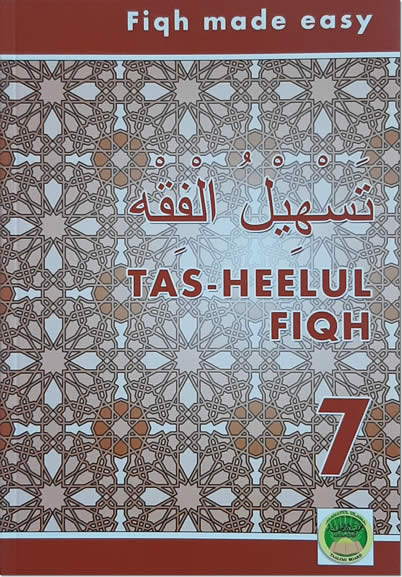 Fiqh made easy
تَسْهِيْلُ الْفِقْه
TAS-HEELUL
FIQH
7
TAALIMI BOARD